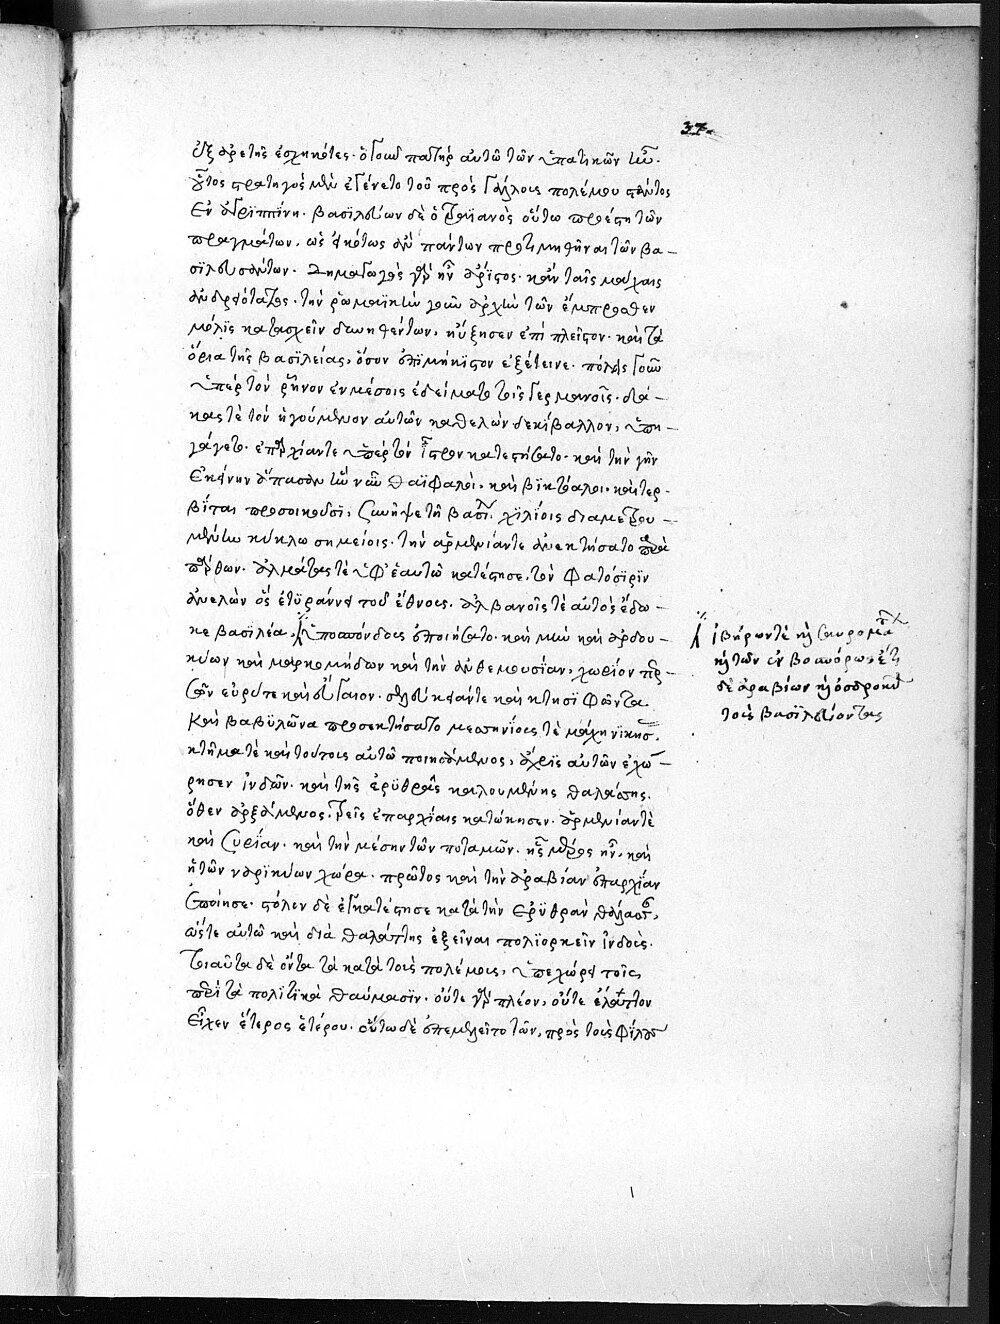 37
ἐξ ἀρετῆς ἐσχηκότες. ὁ γοῦν πατὴρ αὐτῶ τῶν ὑπατικῶν ἦν.
οὗτος στρατηγὸς μὲν ἐγένετο τοῦ πρὸς Γάλλους πολέμου στάντος
ἐν ἀγριππίνη. βασιλεύων δὲ ὁ τραϊανὸς οὕτω προέστη τῶν
πραγμάτων, ὡς εἰκότως ἂν πάντων προτιμηθῆναι τῶν βα-
σϊλευσάντων. δημαγωγός γὰρ ἦν ἄριστος. κἀν ταῖς μάχαις
ἀνδρειότατος. τὴν ῥωμαϊκὴν γοῦν ἀρχὴν τῶν ἔμπροσθεν
μόλϊς κατασχεῖν δυνηθέντων, ηὔξησεν ἐπὶ πλεῖστον. καὶ τὰ
ὅρια τῆς βασϊλείας, ὅσον ἐπιμήκϊστον ἐξέτεινε. πόλεις γοῦν
ὑπὲρ τὸν ῥῆνον ἐν μέσοις ἐδείματο τοῖς Γερμανοῖς. δϊά-
κας τὲ τὸν ἡγούμενον αὐτῶν καθελὼν δεκίβαλλον, ὑπη-
γάγετο. ἐπαρχίαν τε ὑπὲρ τὸν ἴστρον κατεστήσατο. καὶ τὴν γῆν
ἐκείνην ἅπασαν ἣν νῦν θαϊφαλοι. καὶ βϊκτόαλοι. καὶ τερ-
βΐται προσοικοῦσϊ, ζωννῆψε τῆ βασϊλ. χϊλίοις διαμετρου-
μένην κύκλω σημείοις. τὴν ἀρμενίαν τε ἀνεκτήσατο παρὰ
πάρθων. ἀλμάτας τὲ ὑφ' ἑαυτῶ κατέστησε. τὸν φατόσϊρϊν
ἀνελὼν ὃς ἐτϋράννει τοῦ ἔθνους. ἀλβανοῖς τὲ αὐτὸς ἔδω-
κε βασιλέα. ὑποσπόνδους ἐποιήσατο. καὶ μὴν καὶ ἀρδου-
κηνων καὶ μαρκομήδων καὶ τὴν ἀνθεμουσίαν, χωρίον περ-
σῶν εὑρύτε καὶ σεύ γαιον. σελευκηάντε καὶ κτησϊφῶντα
καὶ βαβυλῶνα προσεκτήσατο μεσσηνίους τὲ μάχη νϊκήσ.
κτῆμα τὲ καὶ τούτους αὐτῶ ποιησάμενος, ἄχρϊς αὐτῶν ἐχώ-
ρησεν ϊνδῶν. καὶ τῆς ἐρϋθρᾶς καλουμένης θαλάσσης.
ὅθεν ἀρξάμενος. τρεῖς ἐπαρχίας κατώκησεν. ἀρμενίαν τὲ
καὶ συρΐαν. καὶ τὴν μέσην τῶν ποταμῶν. ἧς μέρος ἦν, καὶ
ἡ τῶν νδρϊκηνων χώρα. πρῶτος καὶ τὴν ἀραβίαν ἐπαρχΐαν
ἐποίησε. στόλον δὲ ἐγκατέστησε κατὰ τὴν ἐρϋθρὰν θάλασσ,
ὥστε αὐτῶ καὶ διὰ θαλάττης ἐξεῖναι πολϊορκεῖν ἰνδούς.
τοιαῦτα δὲ ὄντα τὰ κατὰ τοὺς πολέμους, ὑπεχώρει τοῖς
περὶ τὰ πολϊτϊκὰ θαύμασϊν. οὔτε γὰρ πλέον, οὔτε ἔλαττον
εἶχεν ἕτερος ἑτέρου. οὕτω δὲ ἐπεμελεῖτο τῶν, πρὸς τοὺς φίλους
ἰβήρων τὲ καὶ σαυροματῶν
καὶ τῶν ἐν βοσπόρω. ἔτι
δὲ ἀράβων καὶ ὀσδροηνῶν
τοὺς βασϊλεύοντας